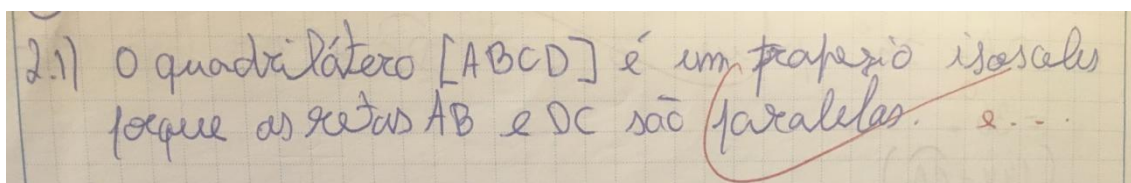 2.1) O quadrilátero [ABCD] é um trapezio isosceles
porque as retas AB e DC são paralelas. e...